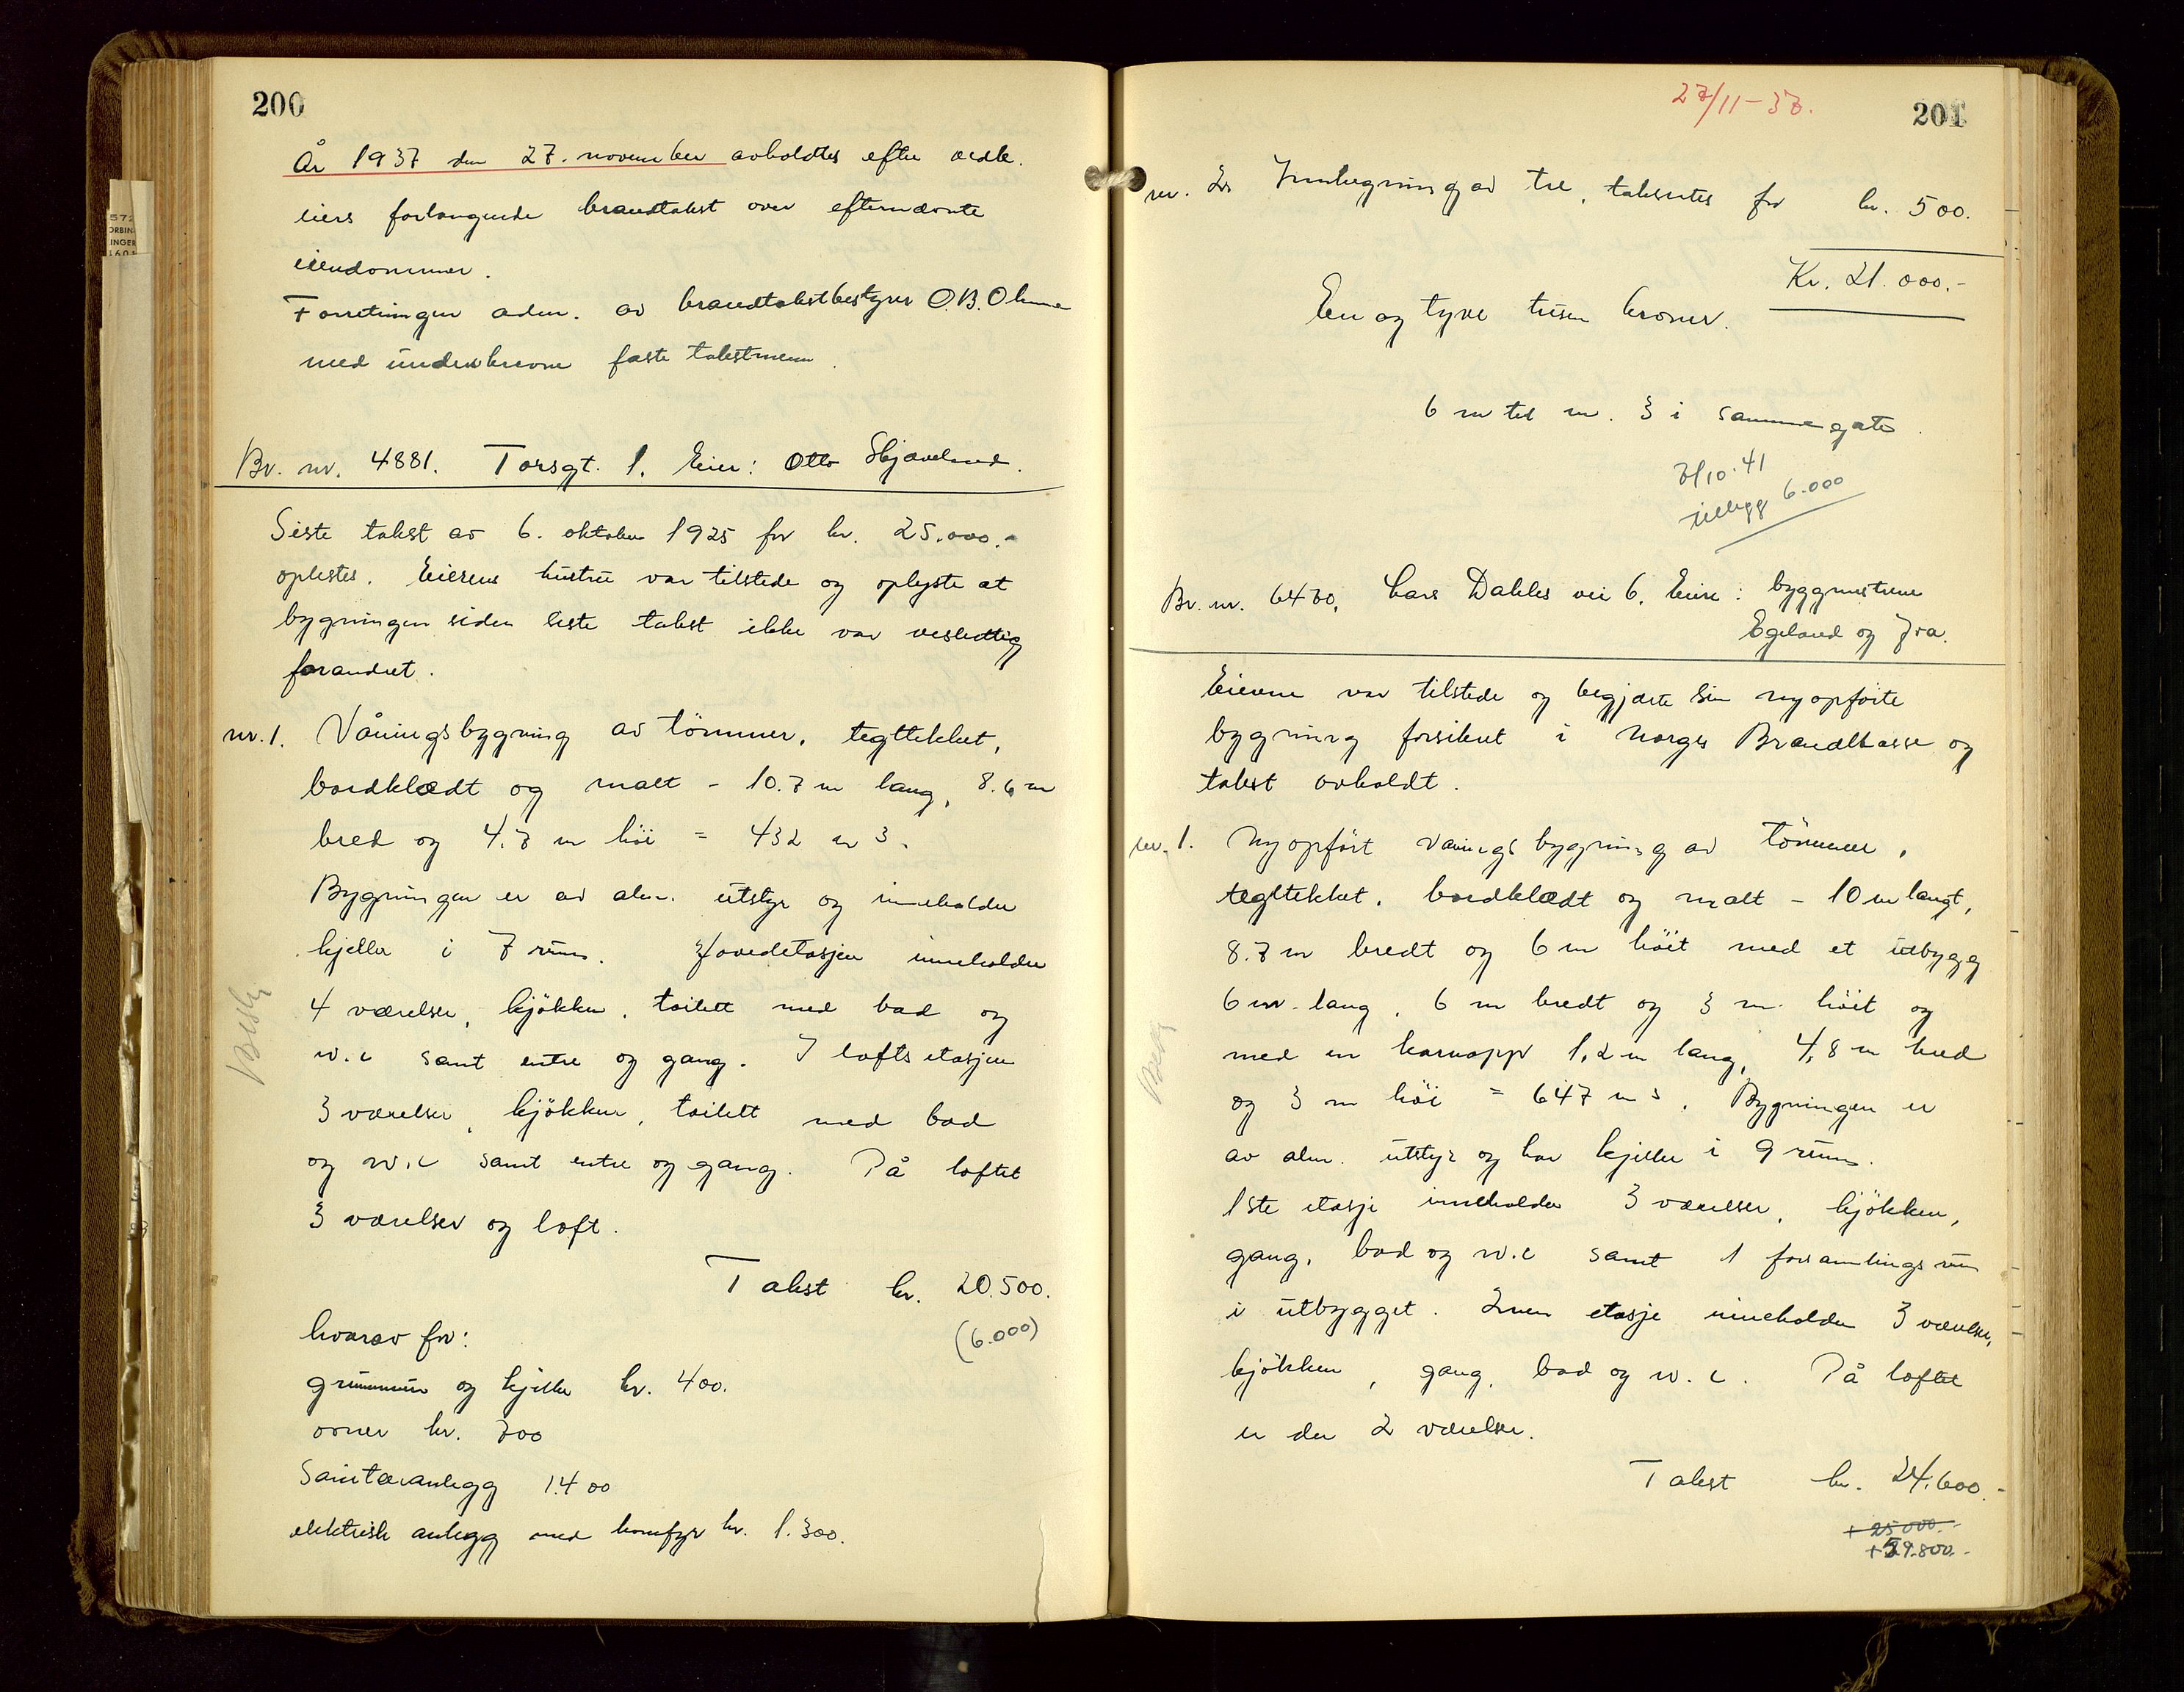 200
År 1937 den 27. november avholdtes efter vedk.
eiers forlangende brandtakst over efternævnte
eiendommer.
Forretningen adm. av brandtakstbestyrer O.B. Ohma
med underskrevne faste takstmenn.
Br. nr. 4881. Torsgt. 1. Eier: Otto Skjæveland.
Siste takst av 6. oktober 1925 for kr. 25.000.-
oplestes. Eierens hustru var tilstede og oplyste at
bygningen siden siste takst ikke var vesentlig
forandret.
nr. 1. Våningsbygning av tömmer, tegltekket,
bordklædt og malt - 10.7 m lang, 8.6 m
bred og 4.7 m höi = 432 m3.
Bygningen er av alm. utstyr og inneholder
kjeller i 7 rum. Hovedetasjen inneholder
4 værelser, kjökken, toilett med bad og
w.c samt entre og gang. I loftsetasjen
3 værelser, kjökken, toilett med bad
og w.c samt entre og gang. På loftet
3 værelser og loft.
Takst kr. 20.500.
(6.000)
hvorav for:
grunnmur og kjeller kr. 400.
ovner kr. 700
Sanitæranlegg 1.400
elektrisk anlegg med komfyr kr. 1.300.
27/11-37.
201
nr. 2. Innhegning av tre, takseres for kr. 500.
Kr. 21.000.-
En og tyve tusen kroner.
6 m til nr. 3 i samme gate.
7/10.41
tillegg 6.000
Br. nr. 6470. Lars Dahles vei 6. Eiere: byggmestrene
Egeland og Fra.
Eierne var tilstede og begjærte sin nyopförte
bygning forsikret i Norges Brandkasse og
takst avholdt.
nr. 1. Nyopfört våningsbygning av tömmer,
tegltekket, bordklædt og malt - 10 m langt,
8.7 m bredt og 6 m höit med et utbygg
6 m lang, 6 m bredt og 3 m höit og
med en karnapp 1,2 m lang, 4,8 m bred
og 3 m höi = 647 m3. Bygningen er
av alm. utstyr og har kjeller i 9 rum.
1ste etasje inneholder 3 værelser, kjökken,
gang, bad og w.c samt 1 forsamlingsrum
i utbygget. 2nen etasje inneholder 3 værelser,
kjökken, gang, bad og w.c. På loftet
er der 2 værelser.
Takst kr. 24.600.-
+ 25 000.-
+ 59.800.-